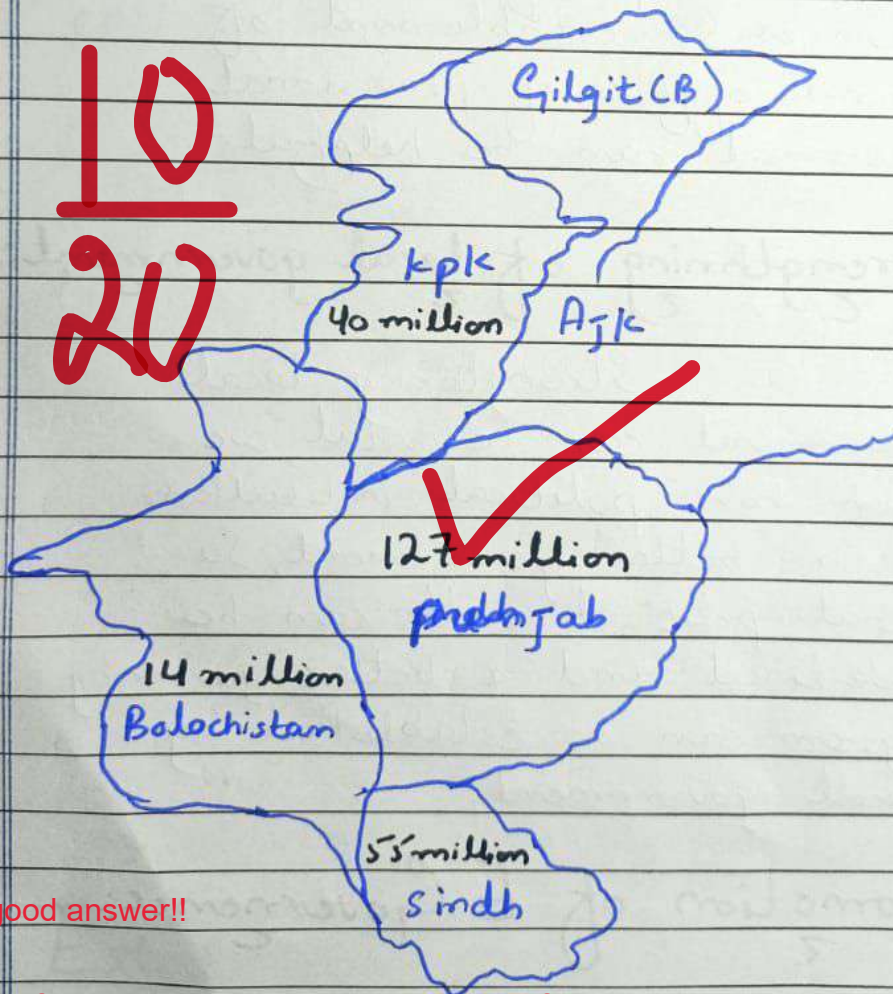 10
20
Gilgit (B)
kpk
40 million
AJK
127 million
14 million
Balochistan
55 million
sindh
good answer!!